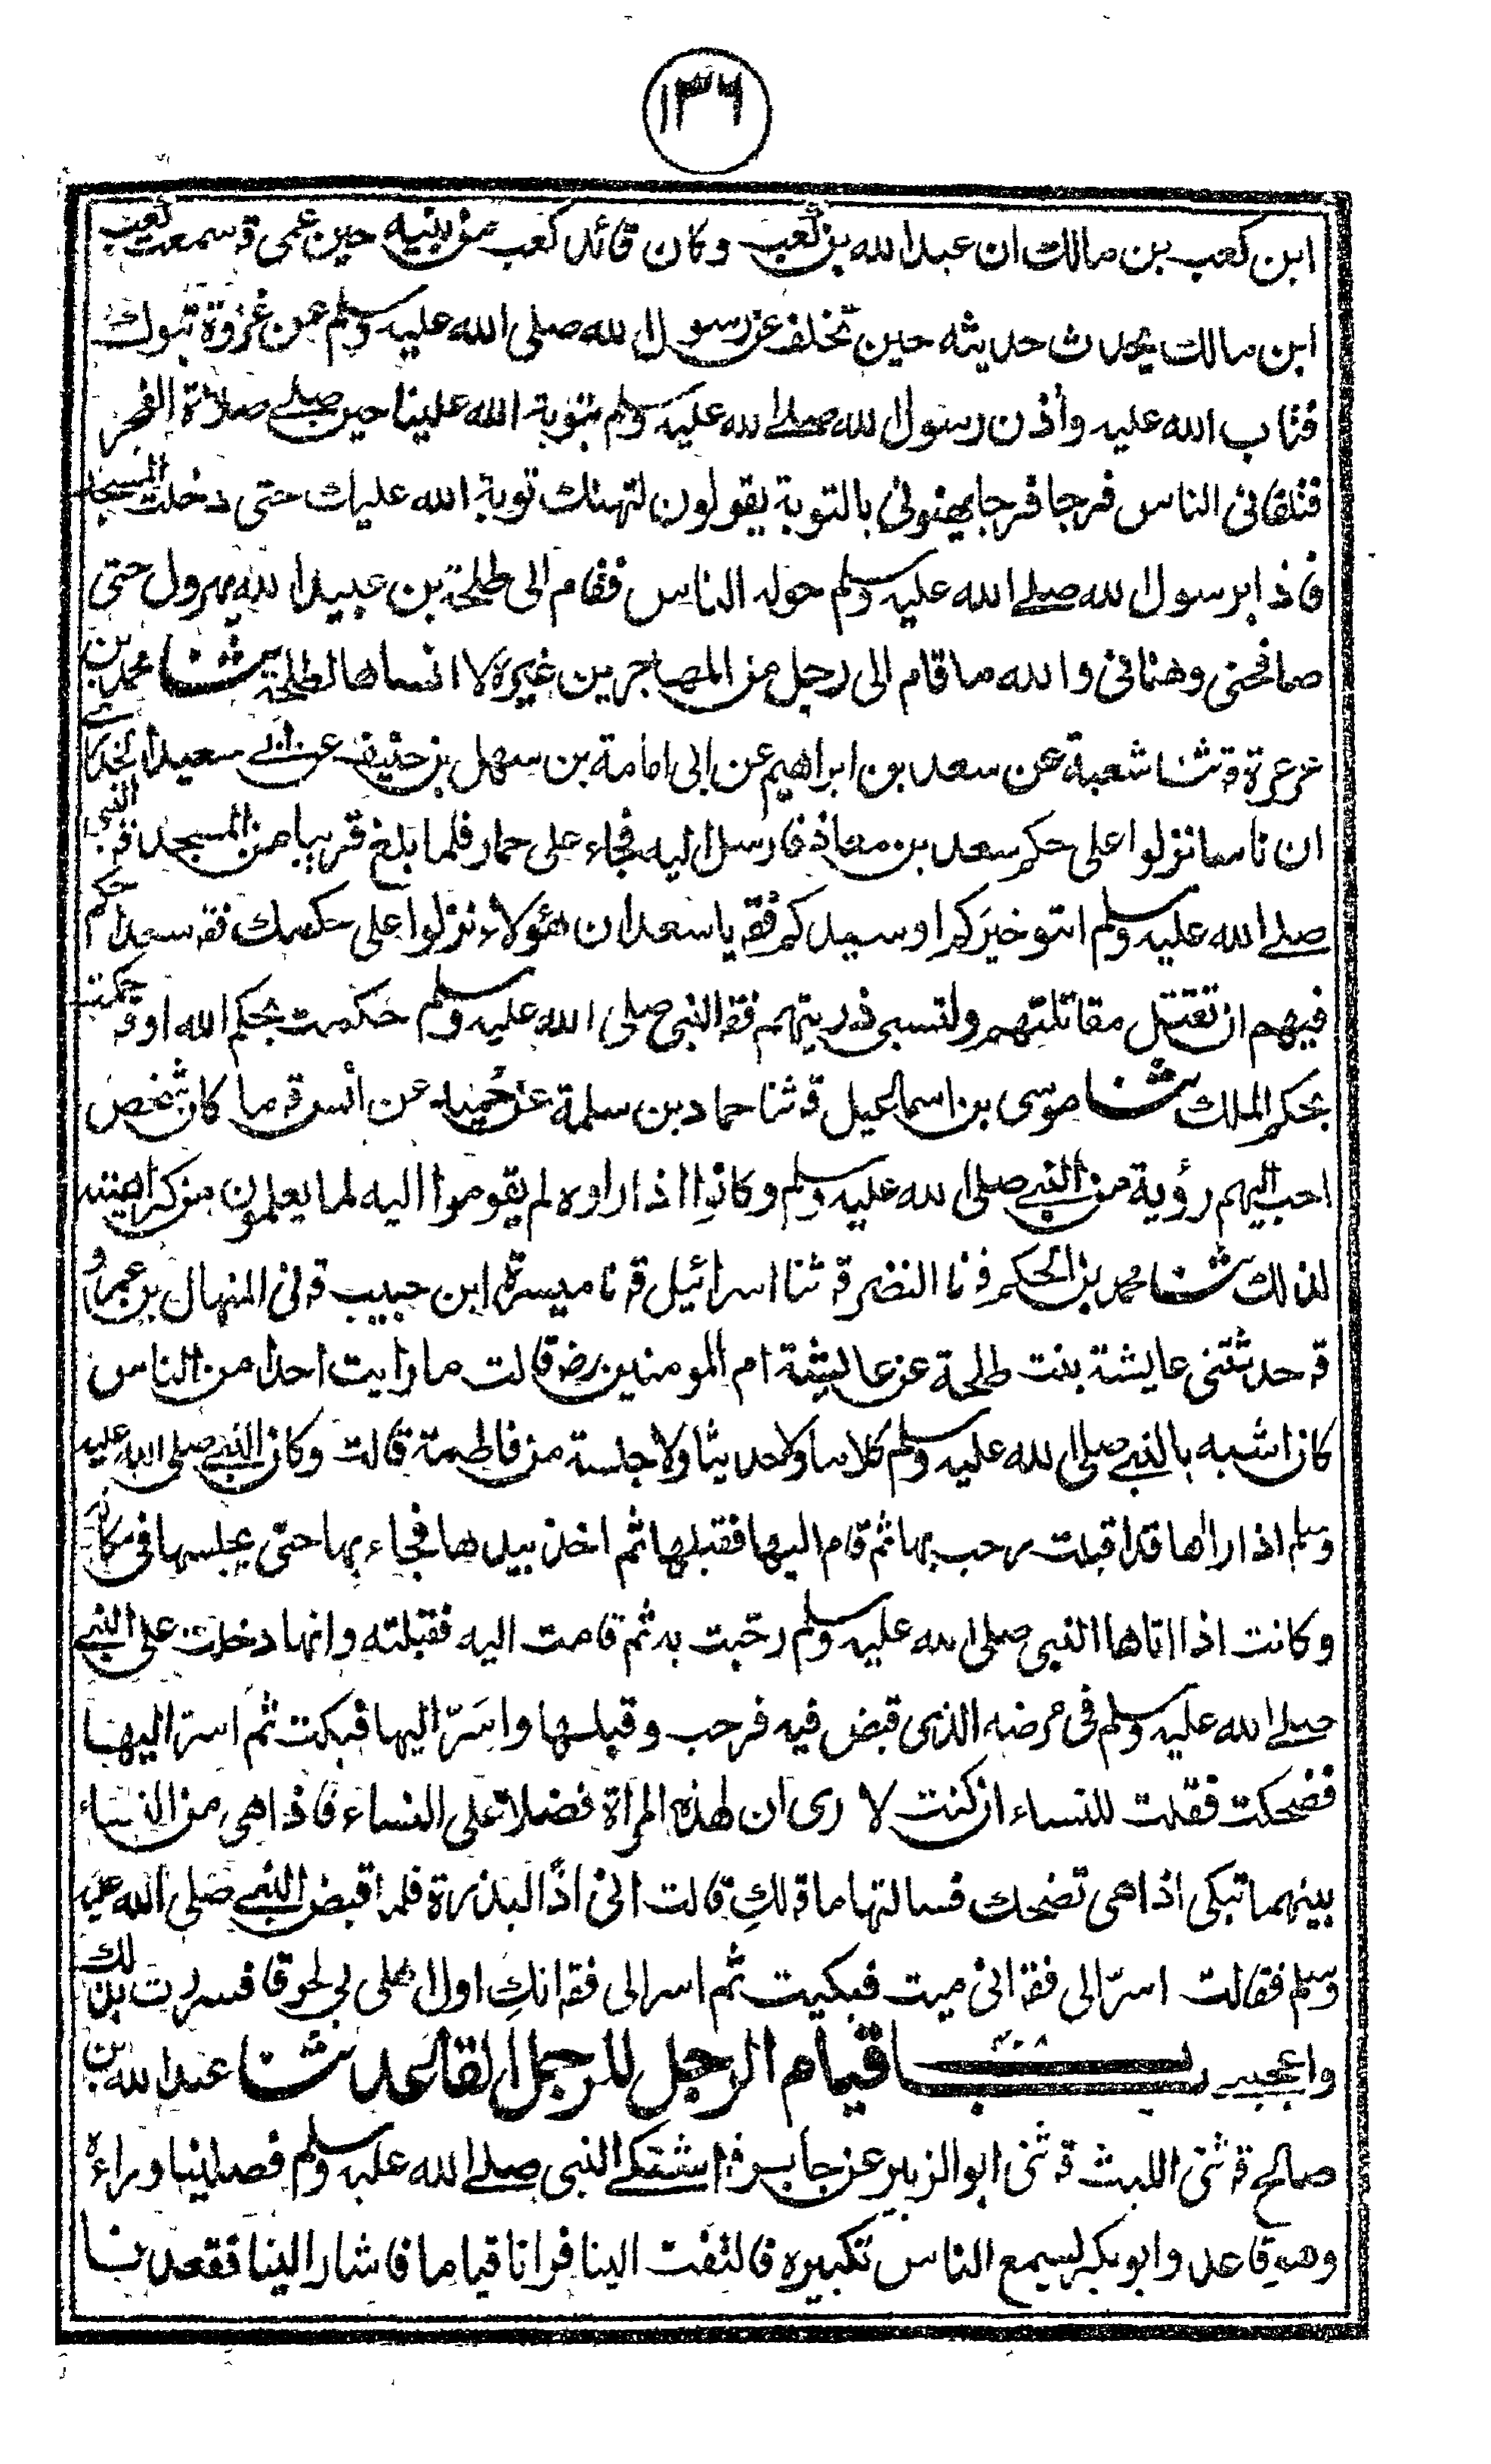 ١٣٦
ابن كعب بن مالك ان عبد الله بن كعب وكان قائد كعب من بنيه حين عمى قـ سمعت كعب
ابن مالك يحدث حديثه حين تخلف عن رسول الله صلى الله عليه وسلم عن غزوة تبوك
فتاب الله عليه وأذن رسول الله صلى الله عليه وسلم بتوبة الله علينا حين صلى صلاة الفجر
فتلقانى الناس فوجا فوجا يهنونى بالتوبة يقولون لتهنك توبة الله عليك حتى دخلت المسجد
فاذا برسول الله صلى الله عليه وسلم حوله الناس فقام الى طلحة بن عبيد الله يهرول حتى
صافحنى وهنانى والله ما قام الى رجل من المهاجرين غيره لا انساها لطلحة ثنا محمد بن
عرعرة قـ ثنا شعبة عن سعد بن ابراهيم عن ابى امامة بن سهل بن حنيف عن ابى سعيد الخدرى
ان ناسا نزلوا على حكم سعد بن معاذ فارسل اليه فجاء على حمار فلما بلغ قريبا من المسجد قـ النبى
صلى الله عليه وسلم ائتو خيركم او سيدكم فقـ يا سعد ان هؤلاء نزلوا على حكمك فقـ سعد احكم
فيهم ان تقتل مقاتلتهم ولتسبى ذريتهم فقـ النبى صلى الله عليه وسلم حكمت بحكم الله او قـ حكمت
بحكم الملك ثنا موسى بن اسماعيل قـ ثنا حماد بن سلمة عن حُميد عن انس قـ ما كان شخص
احب اليهم رؤية من النبى صلى الله عليه وسلم وكانوا اذا راوه لم يقوموا اليه لما يعلمون من كراهيته
لذلك ثنا محمد بن الحكم قـ نا النضر قـ ثنا اسرائيل قـ نا ميسرة ابن حبيب قـ نى المنهال بن عمرو
قـ حدثتنى عايشة بنت طلحة عن عايشة ام المومنين رضـ قالت ما رايت احدا من الناس
كان اشبه بالنبى صلى الله عليه وسلم كلاما ولا حديثا ولا جلسة من فاطمة قالت وكان النبى صلى الله عليه
وسلم اذا راها قد اقبلت رحب بها ثم قام اليها فقبلها ثم اخذ بيدها فجاء بها حتى يجلسها فى مكانه
وكانت اذا اتاها النبى صلى الله عليه وسلم رحّبت به ثم قامت اليه فقبلته وانها دخلت على النبى
صلى الله عليه وسلم فى مرضه الذى قبض فيه فرحب وقبلها واسَرّ اليها فبكت ثم اسر اليها
فضحكت فقلت للنساء ان كنت لا رى ان لهذه المرأة فضلا على النساء فاذا هى من النساء
بينهما تبكى اذا هى تضحك فسالتها ما قـ لكِ قالت انى اذًا لبذرة فلما قبض النبى صلى الله عليه
وسلم فقالت اسرّ الى فقـ انى ميت فبكيت ثم اسر الى فقـ انكِ اول اهلى بى لحوقا فسررت بذلك
واعجبنى باب قيام الرجل للرجل القاعد ثنا عبد الله بن
صالح قـ ثنى الليث قـ ثنى ابو الزبير عن جابر قـ اشتكى النبى صلى الله عليه وسلم فصلينا وراءه
وهو قاعد وابو بكر يسمع الناس تكبيره فالتفت الينا فرانا قياما فاشار الينا فقعدنا